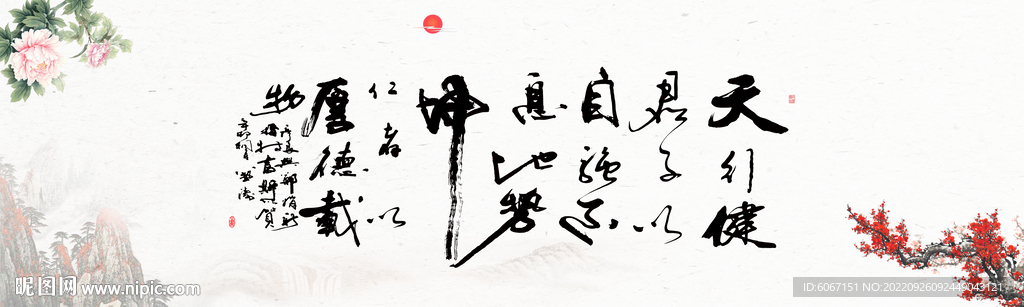 天行健
君子以
自強不
息地勢
坤
仁者以
厚德載
物
昵图网
www.nipic.com
ID:6067151 NO:20220926092449043121